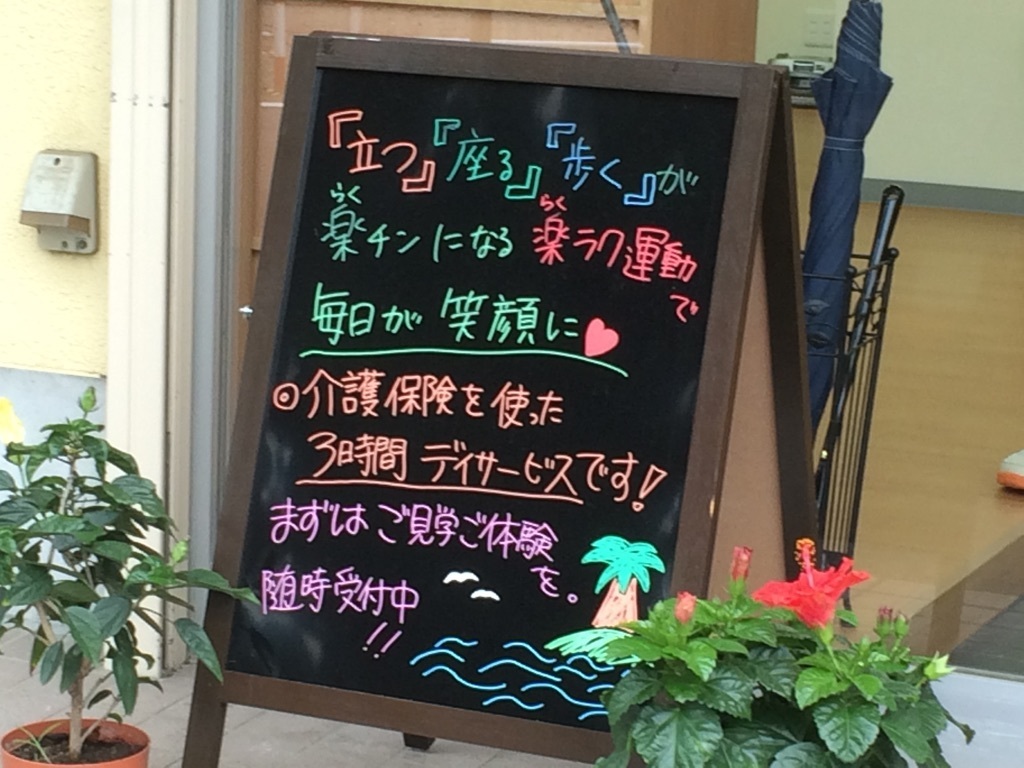 『立つ』『座る』『歩く』が
らく らく
楽チンになる 楽ラク運動で
毎日が 笑顔に
◎介護保険を使った
3時間 デイサービスです!
まずは ご見学ご体験を。
随時受付中!!